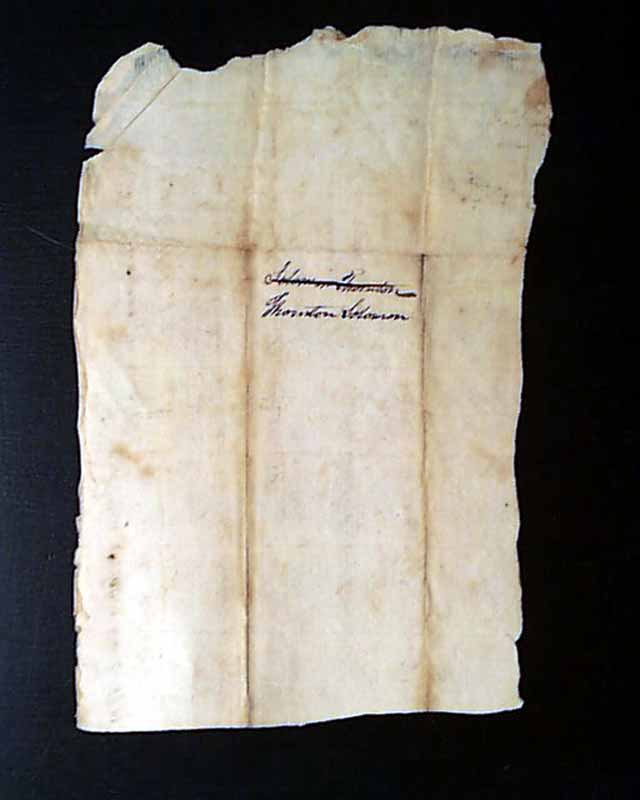 Solomon Thornton
Thornton Solomon